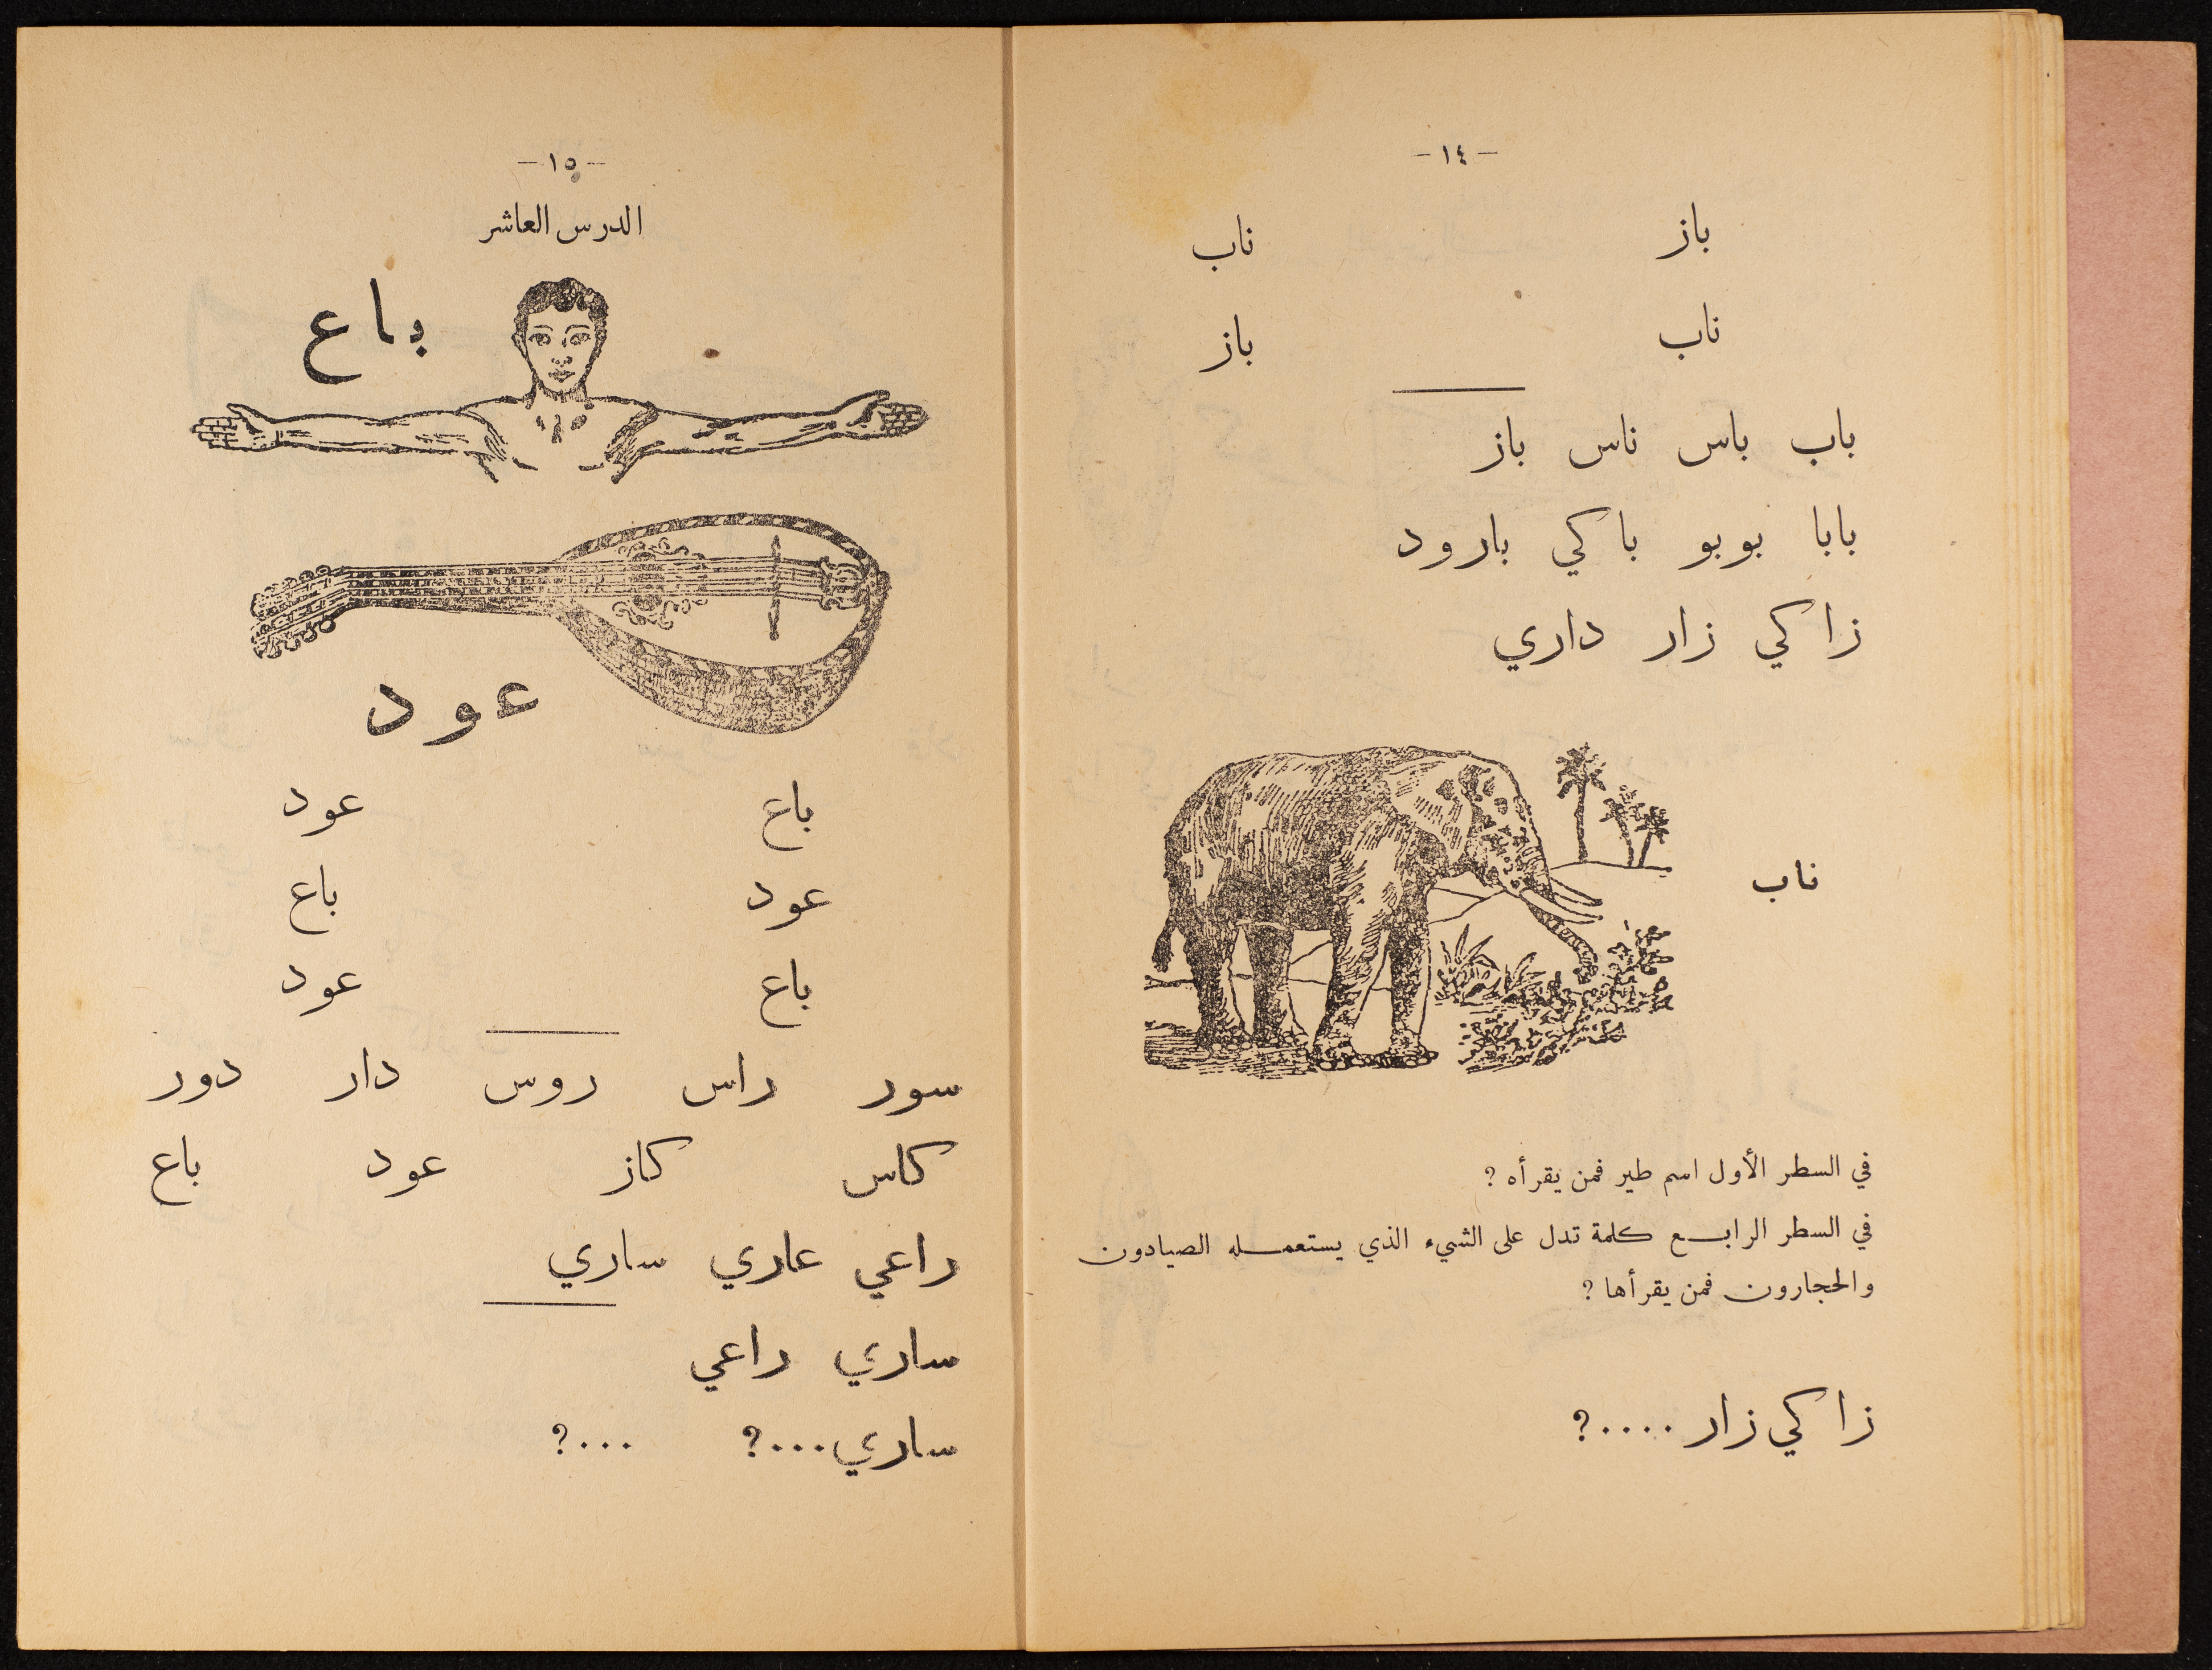 -١٤-
باز ناب
ناب باز
باب باس ناس باز
بابا بوبو باكي بارود
زاكي زار داري
ناب
في السطر الأول اسم طير فمن يقرأه ؟
في السطر الرابع كلمة تدل على الشيء الذي يستعمله الصيادون
والحجارون فمن يقرأها ؟
زاكي زار ....؟
-١٥-
الدرس العاشر
باع
عود
باع عود
عود باع
باع عود
سور راس روس دار دور
كاس كاز عود باع
راعي عاري ساري
ساري راعي
ساري...؟ ...؟